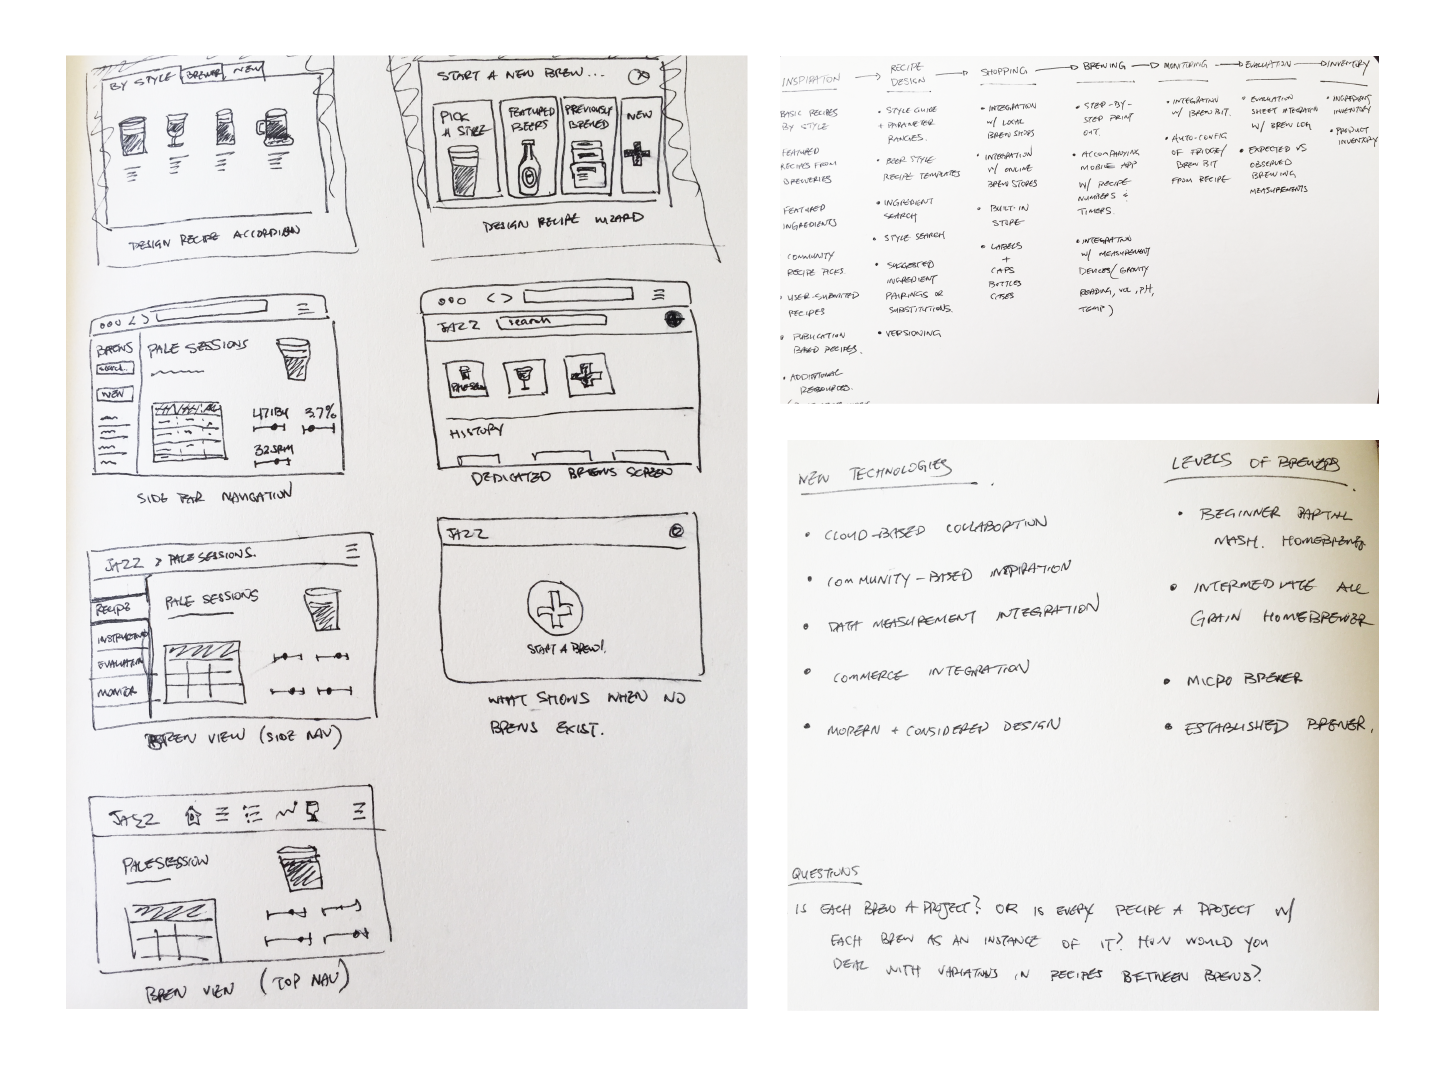 BY STYLE BREWER NEW
DESIGN RECIPE ACCORDIEN
START A NEW BREW...
PICK
A STYLE
FEATURED
BEERS
PREVIOUSLY
BREWED
NEW
DESIGN RECIPE WIZARD
BREWS
SEARCH..
NEW
PALE SESSIONS
47 IBU 3.7%
32 SRM
SIDE BAR NAVIGATION
JAZZ search
PALE SESH
HISTORY
DEDICATED BREWS SCREEN
JAZZ > PALE SESSIONS.
RECIPE
INSTRUCTIONS
EVALUATION
MONITOR
PALE SESSIONS
BREW VIEW (SIDE NAV)
JAZZ
START A BREW!
WHAT SHOWS WHEN NO
BREWS EXIST.
JAZZ
PALE SESSION
BREW VIEW (TOP NAV)
INSPIRATION
BASIC RECIPES
BY STYLE
FEATURED
RECIPES FROM
BREWERIES
FEATURED
INGREDIENTS
COMMUNITY
RECIPE PICKS
• USER-SUBMITTED
RECIPES
• PUBLICATION
BASED RECIPES.
• ADDITIONAL
RESOURCES.
RECIPE
DESIGN
• STYLE GUIDE
+ PARAMETER
RANGES.
• BEER STYLE
RECIPE TEMPLATES
• INGREDIENT
SEARCH
• STYLE SEARCH
• SUGGESTED
INGREDIENT
PAIRINGS OR
SUBSTITUTIONS.
• VERSIONING
SHOPPING
• INTEGRATION
W/ LOCAL
BREW SHOPS
• INTEGRATION
W/ ONLINE
BREW STORES
• BUILT-IN
STORE
• LABELS
+
CAPS
BOTTLES
CASES
BREWING
• STEP-BY-
STEP PRINT
OUT.
• ACCOMPANYING
MOBILE APP
W/ RECIPE
NUMBERS &
TIMERS.
• INTEGRATION
W/ MEASUREMENT
DEVICES (GRAVITY
READING, VOL, PH,
TEMP)
MONITORING
• INTEGRATION
W/ BREWBIT.
• AUTO-CONFIG
OF FRIDGE/
BREWBIT
FROM RECIPE
EVALUATION
• EVALUATION
SHEET INTEGRATION
W/ BREW LOG
• EXPECTED VS
OBSERVED
BREWING
MEASUREMENTS
INVENTORY
• INGREDIENT
INVENTORY
• PRODUCT
INVENTORY
NEW TECHNOLOGIES
• CLOUD-BASED COLLABORTION
• COMMUNITY-BASED INSPIRATION
• DATA MEASUREMENT INTEGRATION
• COMMERCE INTEGRATION
• MODERN + CONSIDERED DESIGN
LEVELS OF BREWERS
• BEGINNER PARTIAL
MASH. HOMEBREWER
• INTERMEDIATE ALL
GRAIN HOMEBREWER
• MICRO BREWER
• ESTABLISHED BREWER.
QUESTIONS
IS EACH BREW A PROJECT? OR IS EVERY RECIPE A PROJECT W/
EACH BREW AS AN INSTANCE OF IT? HOW WOULD YOU
DEAL WITH VARIATIONS IN RECIPES BETWEEN BREWS?